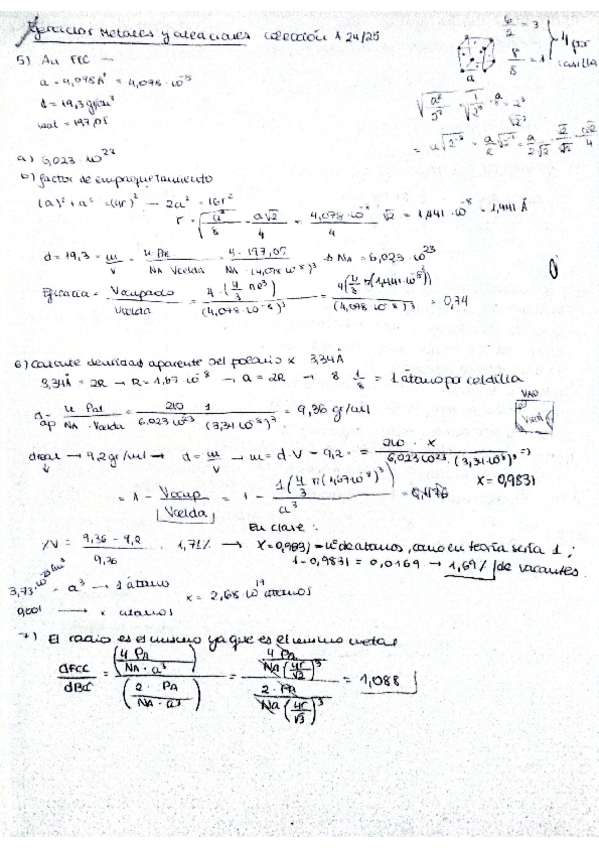 Ejercicios Metales y aleaciones colección 1 24/25
6/2 = 3
8/8 = 1
4 por casilla
a
5) Au FCC —
a = 4,078 Å = 4,078 · 10^-8
d = 19,3 gr/cm³
a) 6,023 · 10^23
b) factor de empaquetamiento
(a)² + a² = (4r)² → 2a² = 16r²
r = √(a²/8) = a√2/4 = 4,078·10^-8/4 √2 = 1,441 · 10^-8 = 1,441 Å
d = 19,3 = m/V = n PA/NA Vcelda = 4 · 197,05/NA · (4,078·10^-8)³ → NA = 6,023 · 10^23
Eficacia = Vocupado/Vcelda = 4·(4/3 π r³)/(4,078·10^-8)³ = 4(4/3 π(1,441·10^-8)³)/(4,078·10^-8)³ = 0,74
6) Calcule densidad aparente del polonio x 3,34 Å
3,34 Å = 2R → R = 1,67 · 10^-8 → a = 2R → 8 1/8 = 1 átomo por celdilla
dap = n Pat/NA · Vcelda = 210 · 1/6,023·10^23 · (3,34·10^-8)³ = 9,36 gr/ml
dreal → 9,2 gr/ml → d = m/V → m = d·V → 9,2 = 210 · x/6,023·10^23 · (3,34·10^-8)³ ⇒
x = 0,9831
= 1 - Vocup/Vcelda = 1 - 1(4/3 π(1,67·10^-8)³)/a³ = 0,476
En clase:
%V = 9,36 - 9,2/9,36 · 1,71% → x = 0,9831 = nº de átomos, como en teoría sería 1;
1 - 0,9831 = 0,0169 → 1,69% de vacantes.
a³ → 1 átomo
0,001 → x átomos
x = 2,68 · 10^19 átomos
7) El radio es el mismo ya que es el mismo metal
dFCC/dBCC = (4 PA/NA · a³)/(2 · PA/NA · a³) = (4 PA/NA(4r/√2)³)/(2 · PA/NA(4r/√3)³) = 1,088